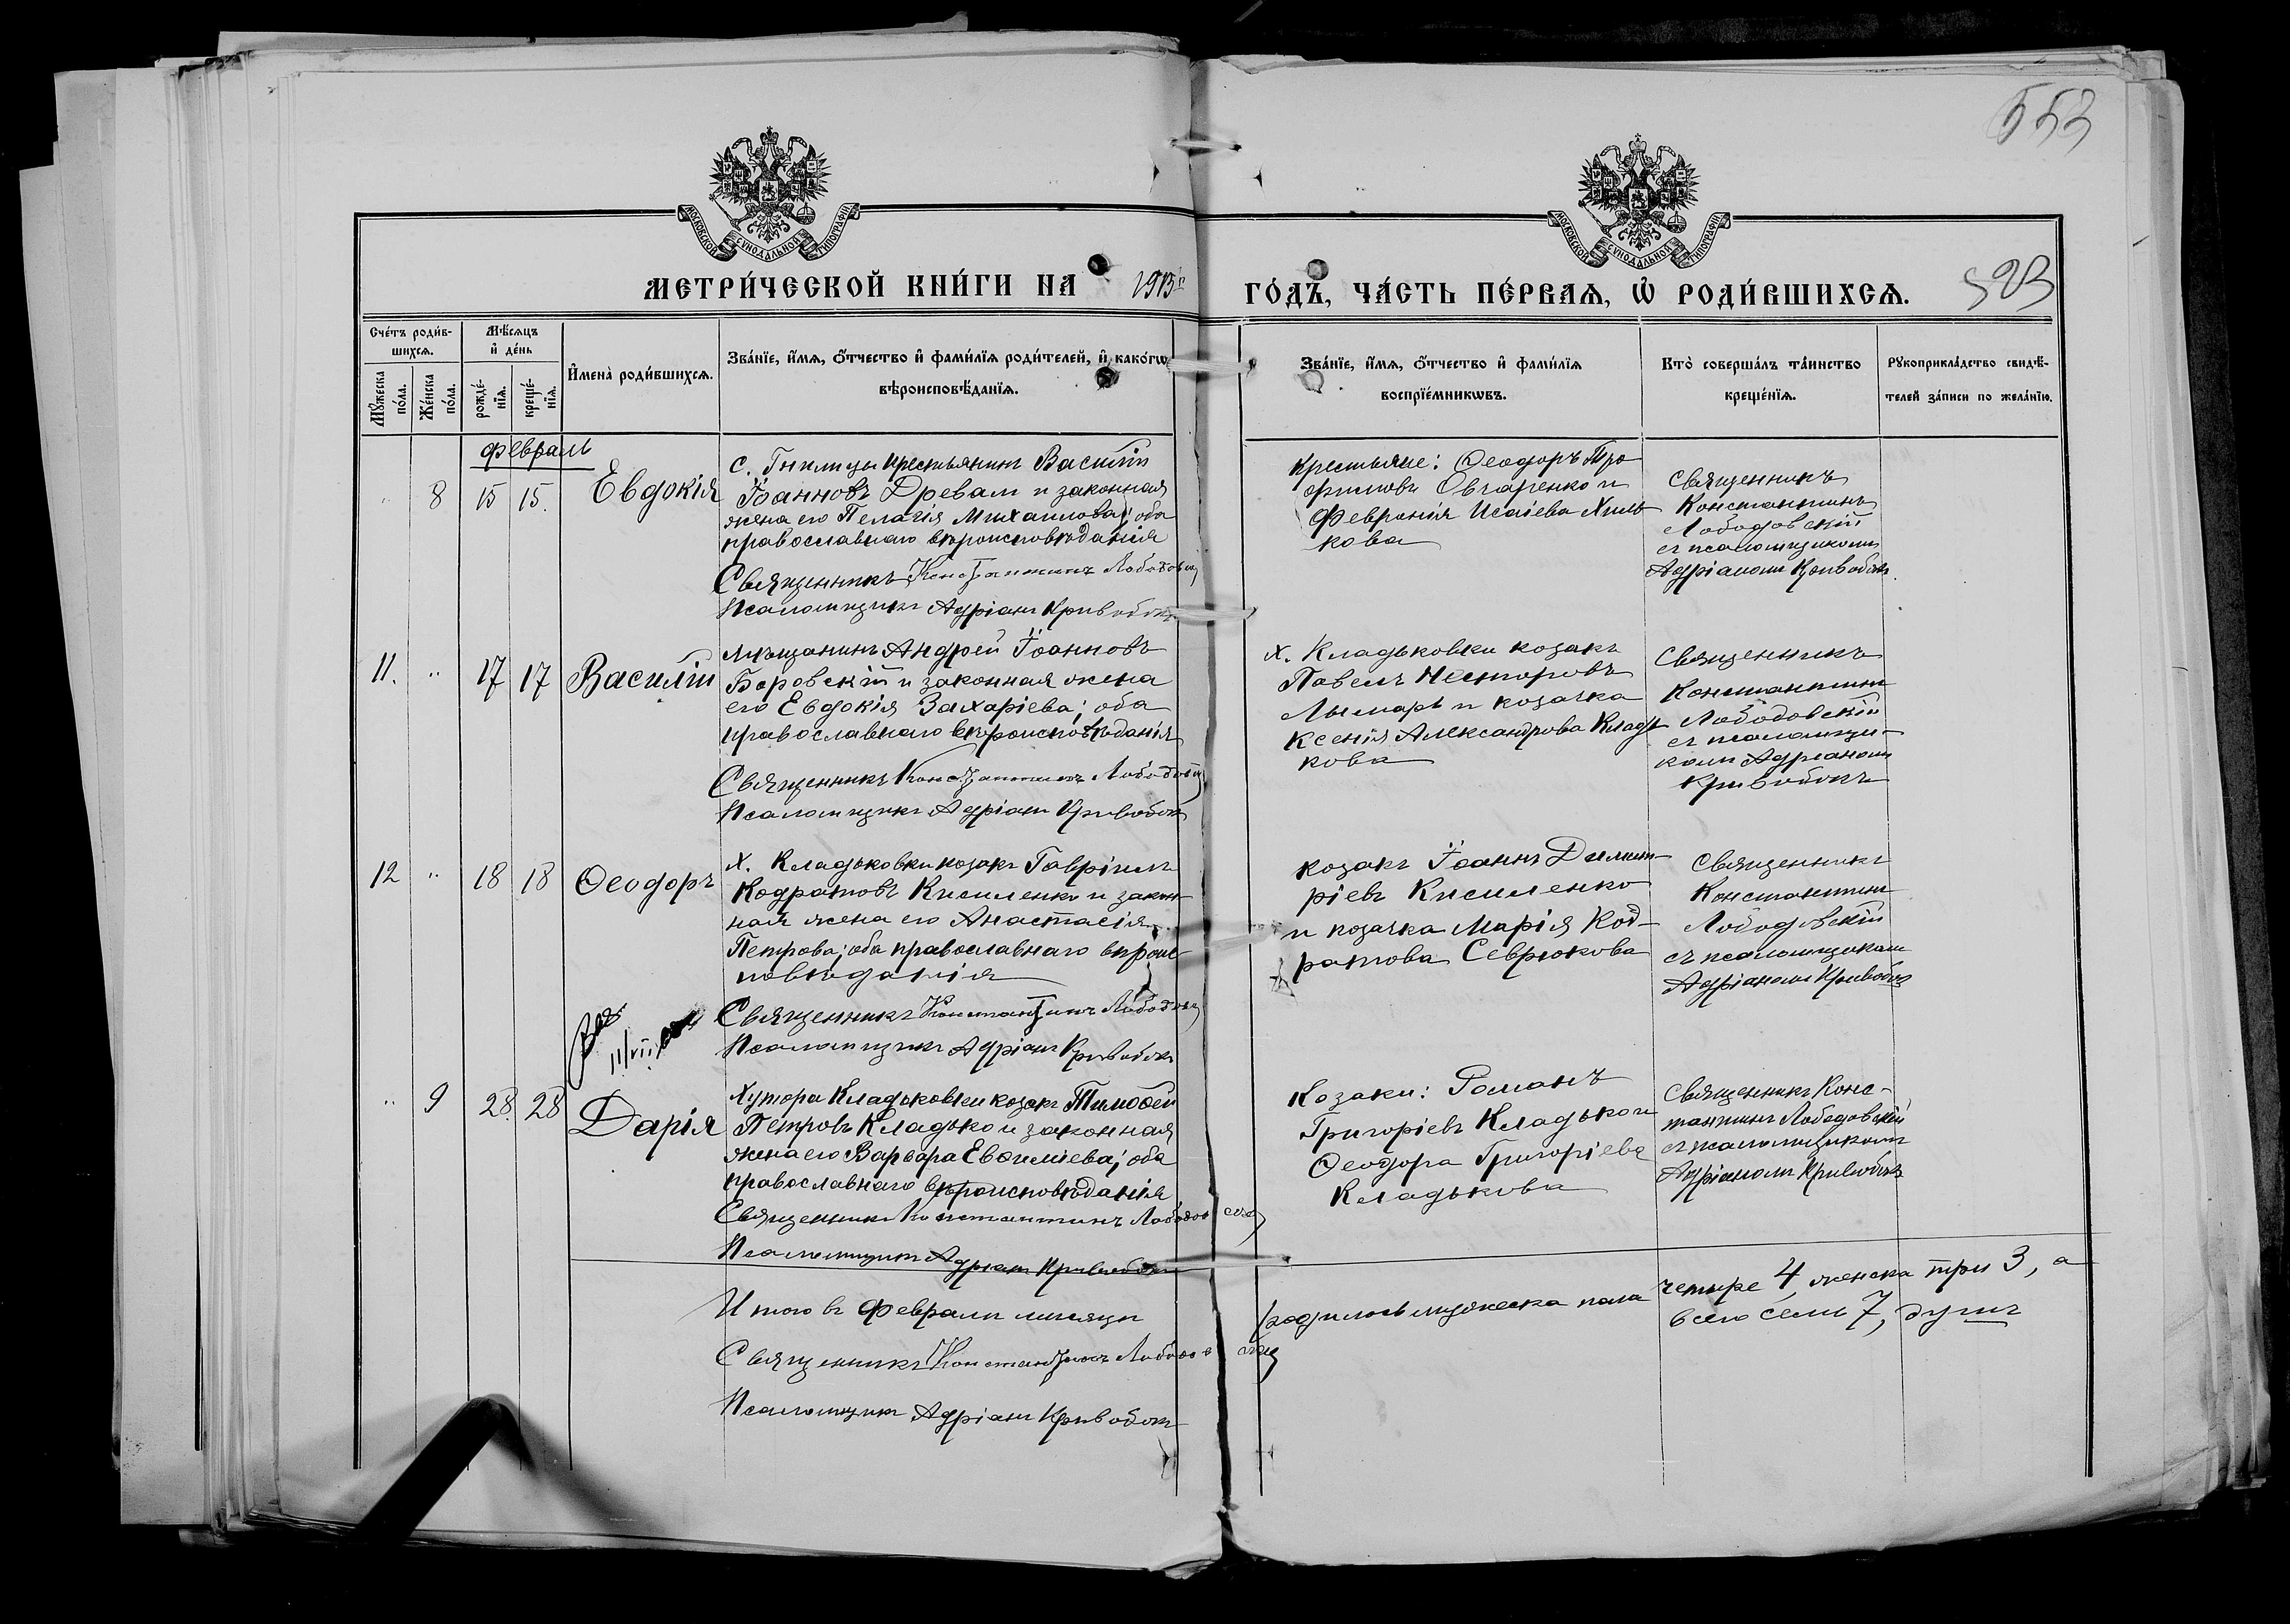 553
МОСКОВСКОЙ СѴНОДАЛЬНОЙ ТИПОГРАФІИ
МОСКОВСКОЙ СѴНОДАЛЬНОЙ ТИПОГРАФІИ
МЕТРИ́ЧЕСКОЙ КНИ́ГИ НА 1913 г
ГО́ДЪ, ЧА́СТЬ ПЕ́РВАѦ, Ѡ҆ РОДИ́ВШИХСѦ.
Сче́тъ роди́в-
шихсѧ.
Мѣ́сѧцъ
и҆ де́нь
И҆мена̀ роди́вшихсѧ.
Зва́нїе, и҆́мѧ, ѻ҆́тчество и҆ фами́лїѧ роди́телей, и҆ како́гѡ
вѣроисповѣ́данїѧ.
Мꙋ́жеска
по́ла.
Же́нска
по́ла.
рожде́-
нїѧ.
креще́-
нїѧ.
Зва́нїе, и҆́мѧ, ѻ҆́тчество и҆ фами́лїѧ
воспрїе́мникѡвъ.
Кто̀ соверша́лъ та́инство
креще́нїѧ.
Рꙋкоприкла́дство свидѣ́-
телей за́писи по жела́нїю.
Февраль
" 8 15 15. Евдокія
с. Гнилицы крестьянинъ Василій
Іоанновъ Древаль и законная
жена его Пелагія Михаилова; оба
православнаго вѣроисповѣданія
Священникъ Константинъ Лободовскій
Псаломщикъ Адріанъ Кривобокъ
Крестьяне: Ѳеодоръ Тро
фимовъ Овчаренко и
Февронія Исаіева Хиль
кова
Священникъ
Константинъ
Лободовскій
съ псаломщикомъ
Адріаномъ Кривобокъ
11. " 17 17 Василій
мѣщанинъ Андрей Іоанновъ
Боровскій и законная жена
его Евдокія Захаріева; оба
православнаго вѣроисповѣданія
Священникъ Константинъ Лободовскій
Псаломщикъ Адріанъ Кривобокъ
х. Кладьковки козакъ
Павелъ Несторовъ
Лымарь и козачка
Ксенія Александрова Кладь
кова
Священникъ
Константинъ
Лободовскій
съ псаломщи-
комъ Адріаномъ
Кривобокъ
12 " 18 18 Ѳеодоръ
х. Кладьковки козакъ Гавріилъ
Кодратовъ Кисиленко и закон-
ная жена его Анастасія
Петрова; оба православнаго вѣроис-
повѣданія
Священникъ Константинъ Лободовскій
Псаломщикъ Адріанъ Кривобокъ
козакъ Іоаннъ Димит-
ріевъ Кисиленко
и козачка Марія Код-
ратова Севрюкова
Священникъ
Константинъ
Лободовскій
съ псаломщикомъ
Адріаномъ Кривобокъ
" 9 28. 28 Дарія
Хутора Кладьковки козакъ Тимоѳей
Петровъ Кладько и законная
жена его Варвара Евѳиміева; оба
православнаго вѣроисповѣданія
Священникъ Константинъ Лободовскій
Псаломщикъ Адріанъ Кривобокъ
Козаки: Романъ
Григоріевъ Кладько и
Ѳеодора Григоріева
Кладькова
Священникъ Конс-
тантинъ Лободовскій
съ псаломщикомъ
Адріаномъ Кривобокъ
Итого въ Февралѣ мѣсяцѣ родилось мужеска пола четыре 4, женска три 3, а
всего семь 7, душъ
Священникъ Константинъ Лободовскій
Псаломщикъ Адріанъ Кривобокъ